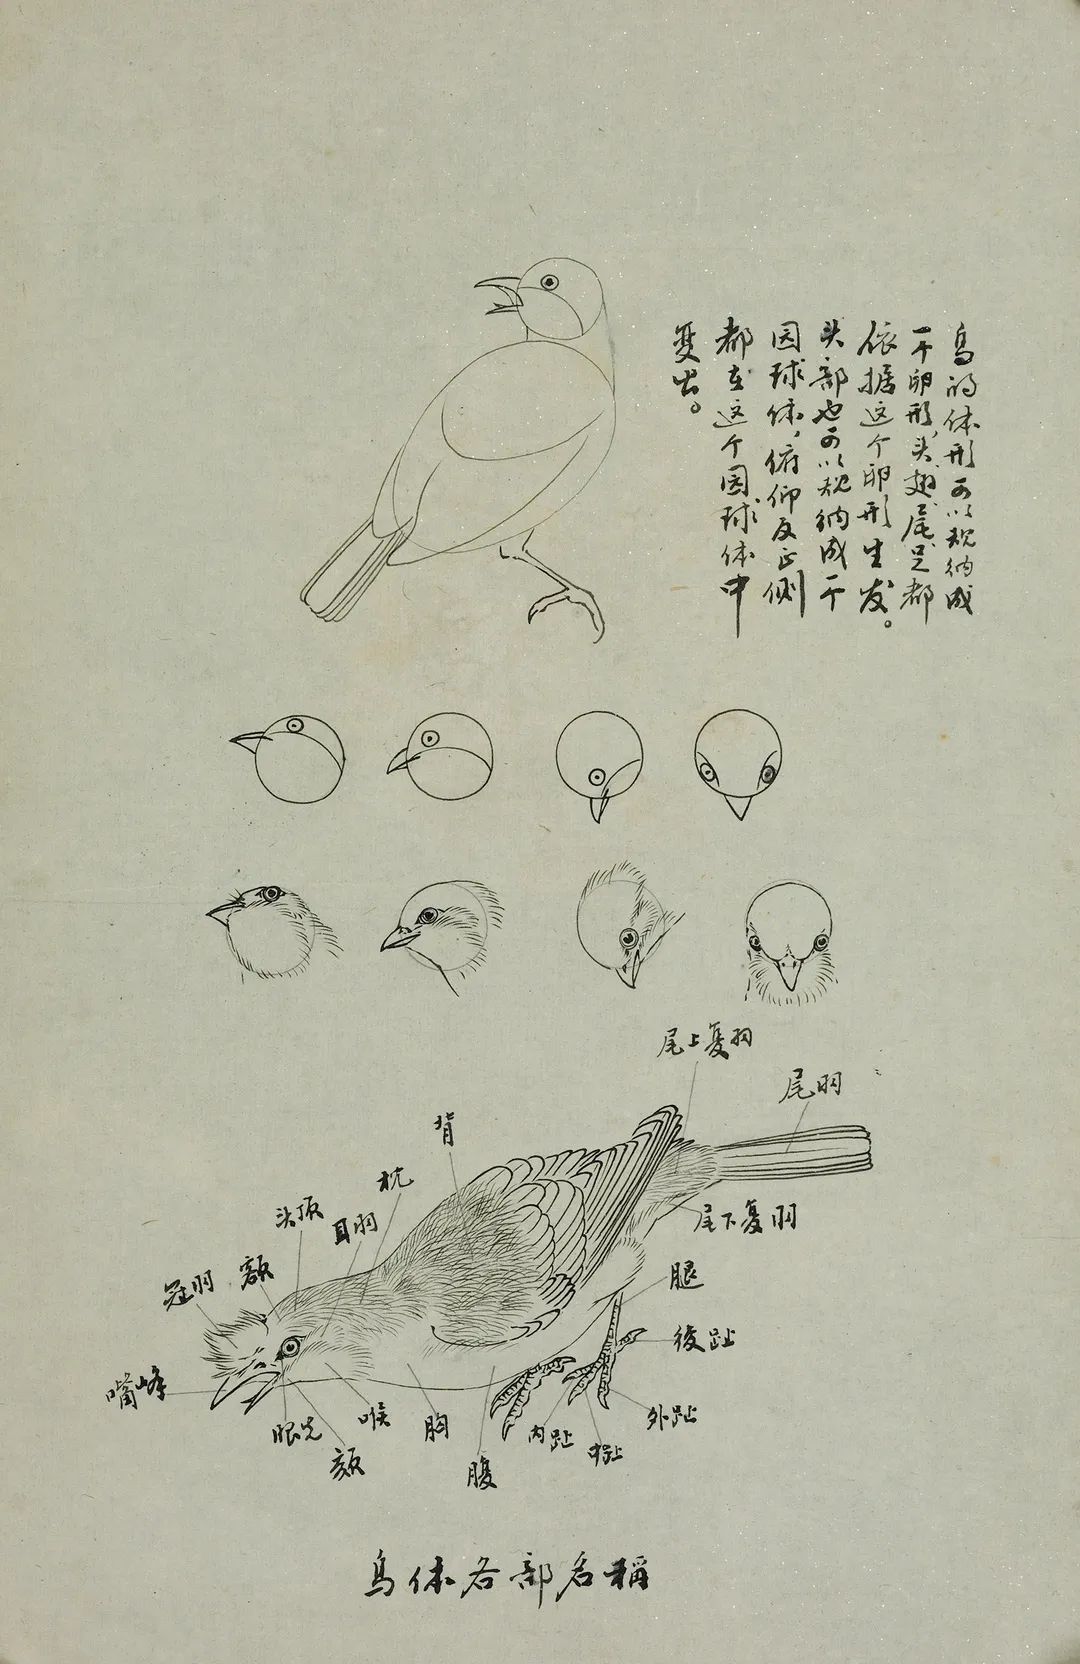 鸟的体形可以规纳成
一个卵形，头、翅、尾、足、都
依据这个卵形生发。
头部也可以规纳成一个
园球体，俯仰反正侧
都在这个园球体中
变出。
尾上复羽
尾羽
背
枕
头顶
耳羽
尾下复羽
冠羽
额
腿
後趾
嘴峰
眼先
喉
胸
内趾
中趾
外趾
颏
腹
鸟体各部名稱